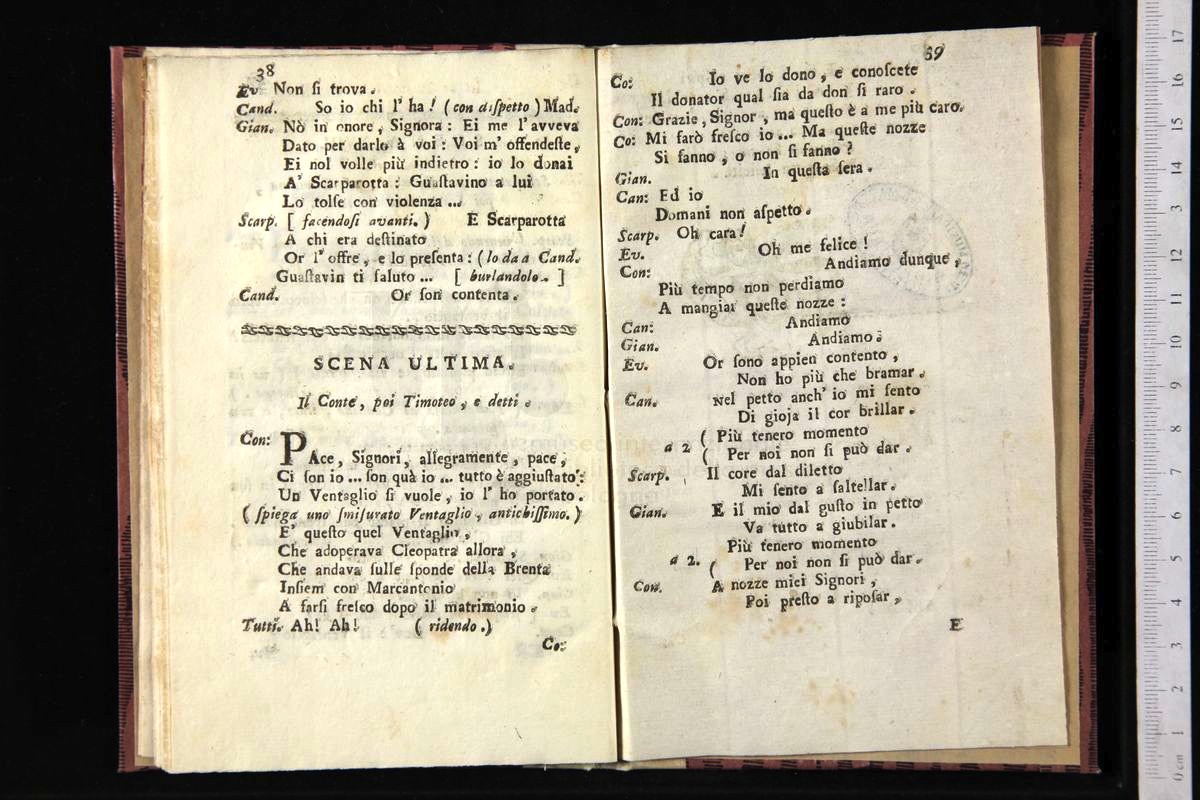 38
Ev Non ſi trova.
Cand. So io chi l' ha! (con diſpetto) Mad.
Gian. Nò in onore, Signora: Ei me l'avveva
Dato per darlo à voi: Voi m' offendeſte,
Ei nol volle più indietro: io lo donai
A' Scarparotta: Guaſtavino a lui
Lo tolſe con violenza ...
Scarp. [ facendoſi avanti. ) E Scarparotta
A chi era deſtinato
Or l' offre, e lo preſenta: (lo da a Cand.
Guaſtavin ti ſaluto ... [ burlandolo. ]
Cand. Or ſon contenta.
SCENA ULTIMA.
Il Conte, poi Timoteo, e detti.
Con: PAce, Signori, allegramente, pace,
Ci ſon io ... ſon quà io ... tutto è aggiuſtato:
Un Ventaglio ſi vuole, io l' ho portato.
( ſpiega uno ſmiſurato Ventaglio, antichiſſimo. )
E' queſto quel Ventaglio,
Che adoperava Cleopatra allora,
Che andava ſulle ſponde della Brenta
Inſiem con Marcantonio
A farſi freſco dopo il matrimonio.
Tutti. Ah! Ah! ( ridendo. )
Co:
39
Co: Io ve lo dono, e conoſcete
Il donator qual ſia da don ſi raro.
Con: Grazie, Signor, ma queſto è a me più caro.
Co: Mi farò freſco io ... Ma queſte nozze
Si fanno, o non ſi fanno?
Gian. In queſta ſera.
Can: Ed io
Domani non aſpetto.
Scarp. Oh cara!
Ev. Oh me felice!
Con: Andiamo dunque,
Più tempo non perdiamo
A mangiar queſte nozze:
Can: Andiamo
Gian. Andiamo:
Ev. Or ſono appien contento,
Non ho più che bramar.
Can. Nel petto anch' io mi ſento
Di gioja il cor brillar.
a 2 ( Più tenero momento
( Per noi non ſi può dar.
Scarp. Il core dal diletto
Mi ſento a ſaltellar.
Gian. E il mio dal guſto in petto
Va tutto a giubilar.
Più tenero momento
a 2. ( Per noi non ſi può dar.
Con. A nozze miei Signori,
Poi preſto a ripoſar,
E
0 cm 1 2 3 4 5 6 7 8 9 10 11 12 13 14 15 16 17